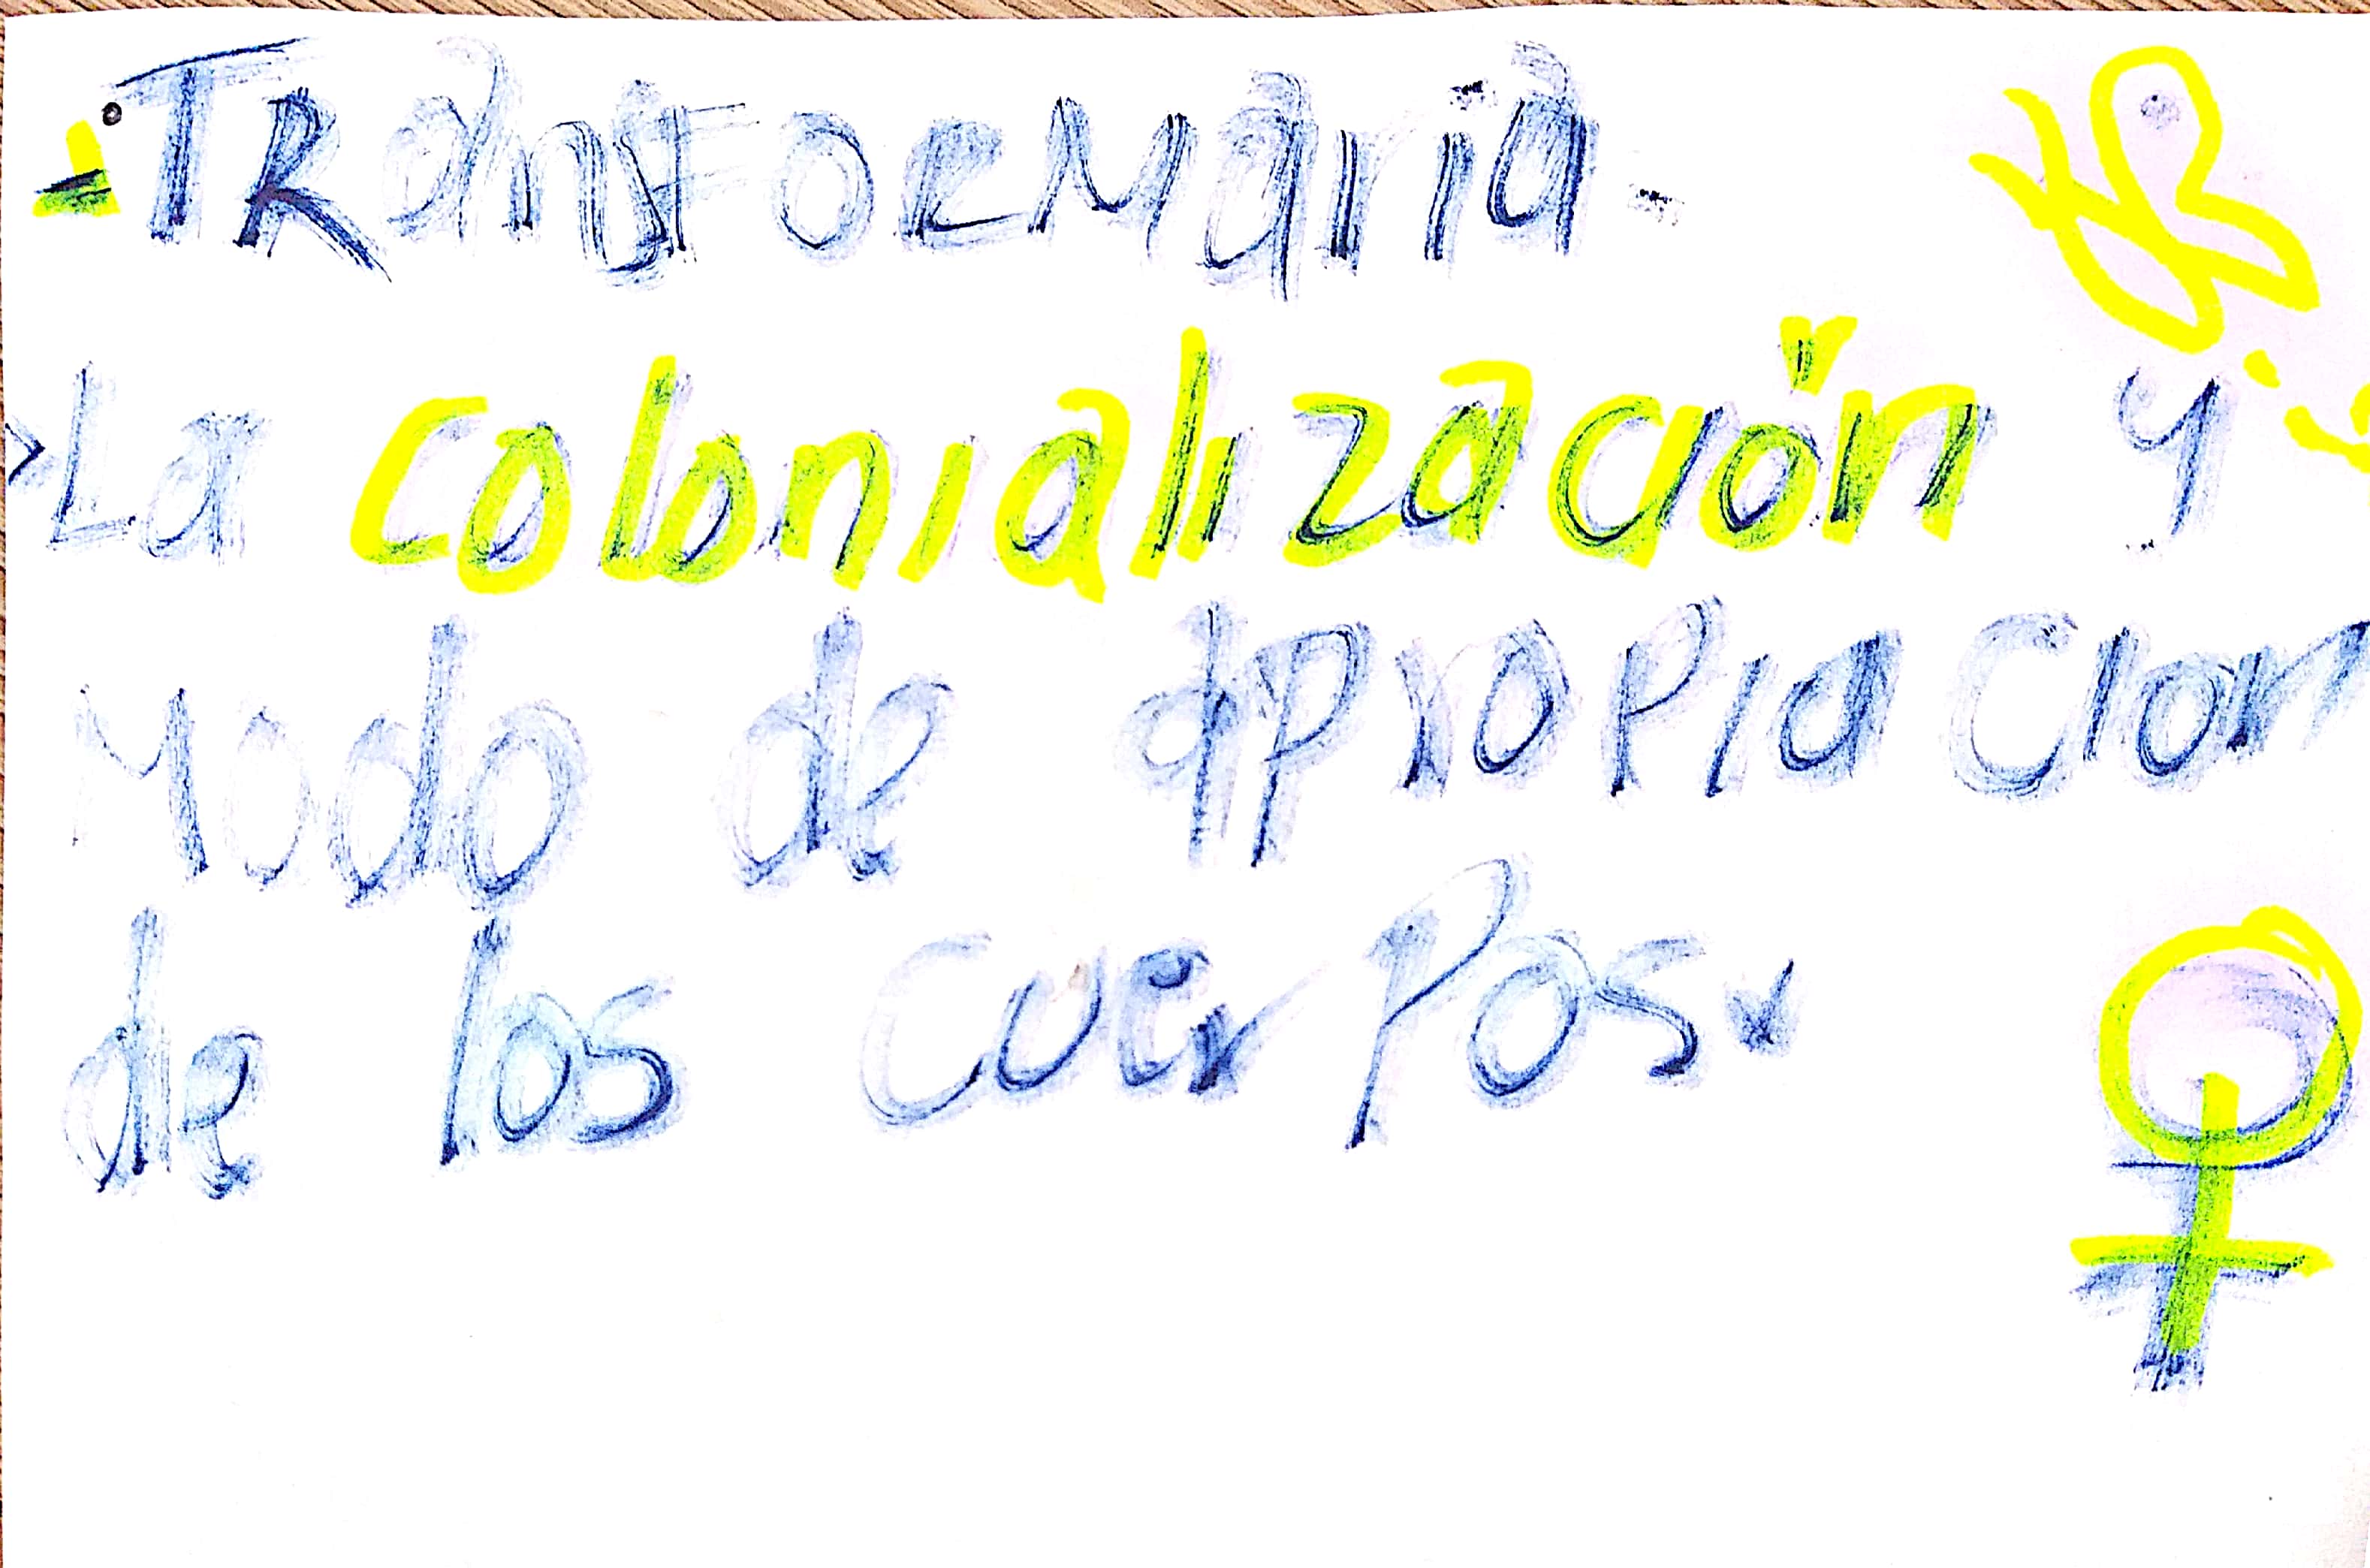 - TRansFORMaria -
La colonialización y
Modo de apropiacion
de los cuerpos.